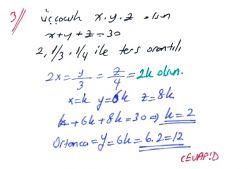 3/ üç çocuk x.y.z olsun
x+y+z=30
2, 1/3, 1/4 ile ters orantılı
2x = y/3 = z/4 = 2k olsun.
x=k y=6k z=8k
k+6k+8k=30 ⇒ k=2
Ortanca=y=6k=6.2=12
CEVAP:D